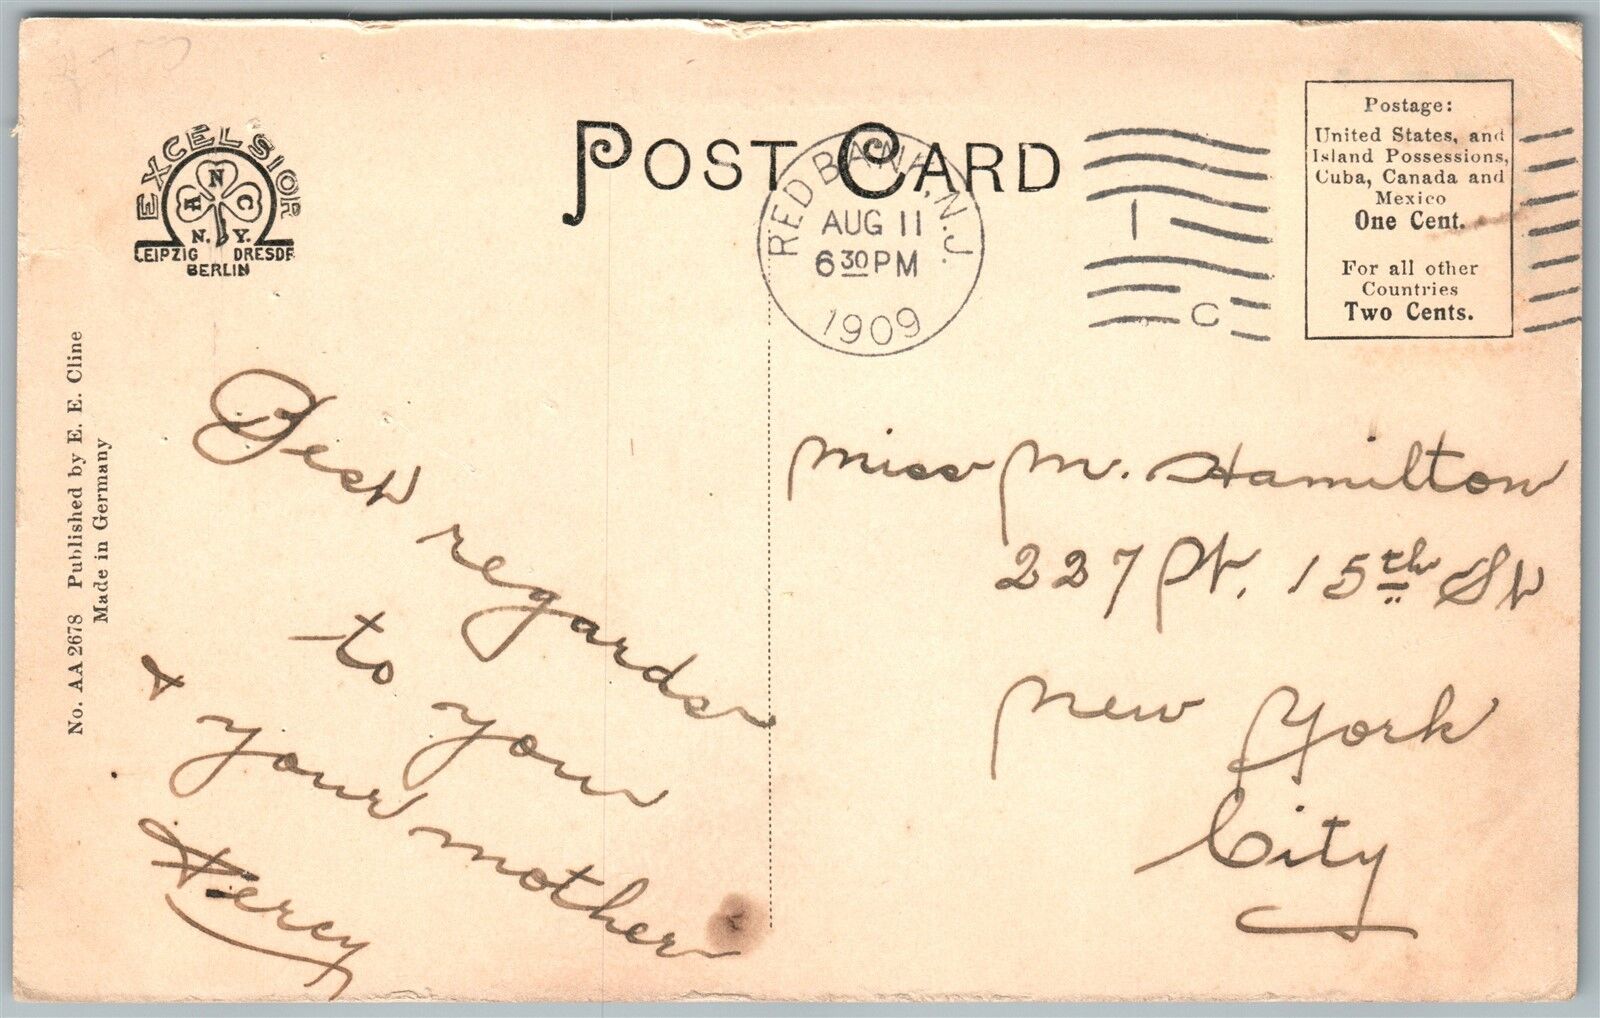 EXCELSIOR
A N C
N. Y.
LEIPZIG DRESDE
BERLIN
POST CARD
RED BANK, N.J.
AUG 11
6 30 PM
1909
1
C
Postage:
United States, and
Island Possessions,
Cuba, Canada and
Mexico
One Cent.
For all other
Countries
Two Cents.
No. AA 2678 Published by E. E. Cline
Made in Germany
Best regards
to you
+ your mother
Miss M. Hamilton
227 15th St
New York
City